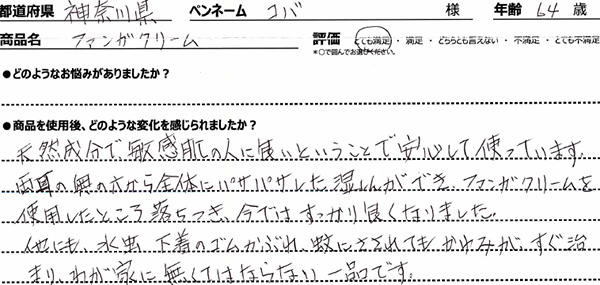 都道府県 神奈川県 ペンネーム コバ 様 年齢 64 歳
商品名 ファンガクリーム 評価 とても満足 ・ 満足 ・ どちらとも言えない ・ 不満足 ・ とても不満足
*○で囲んでお選びください。
●どのようなお悩みがありましたか？
●商品を使用後、どのような変化を感じられましたか？
天然成分で、敏感肌の人に良いということで安心して使っています。
両耳の奥の方から全体にパサパサした湿しんができ、ファンガクリームを
使用したところ落ちつき、今ではすっかり良くなりました。
他にも、水虫、下着のゴムかぶれ、蚊にさされてもかゆみが、すぐ治
まり、わが家に無くてはならない一品です。